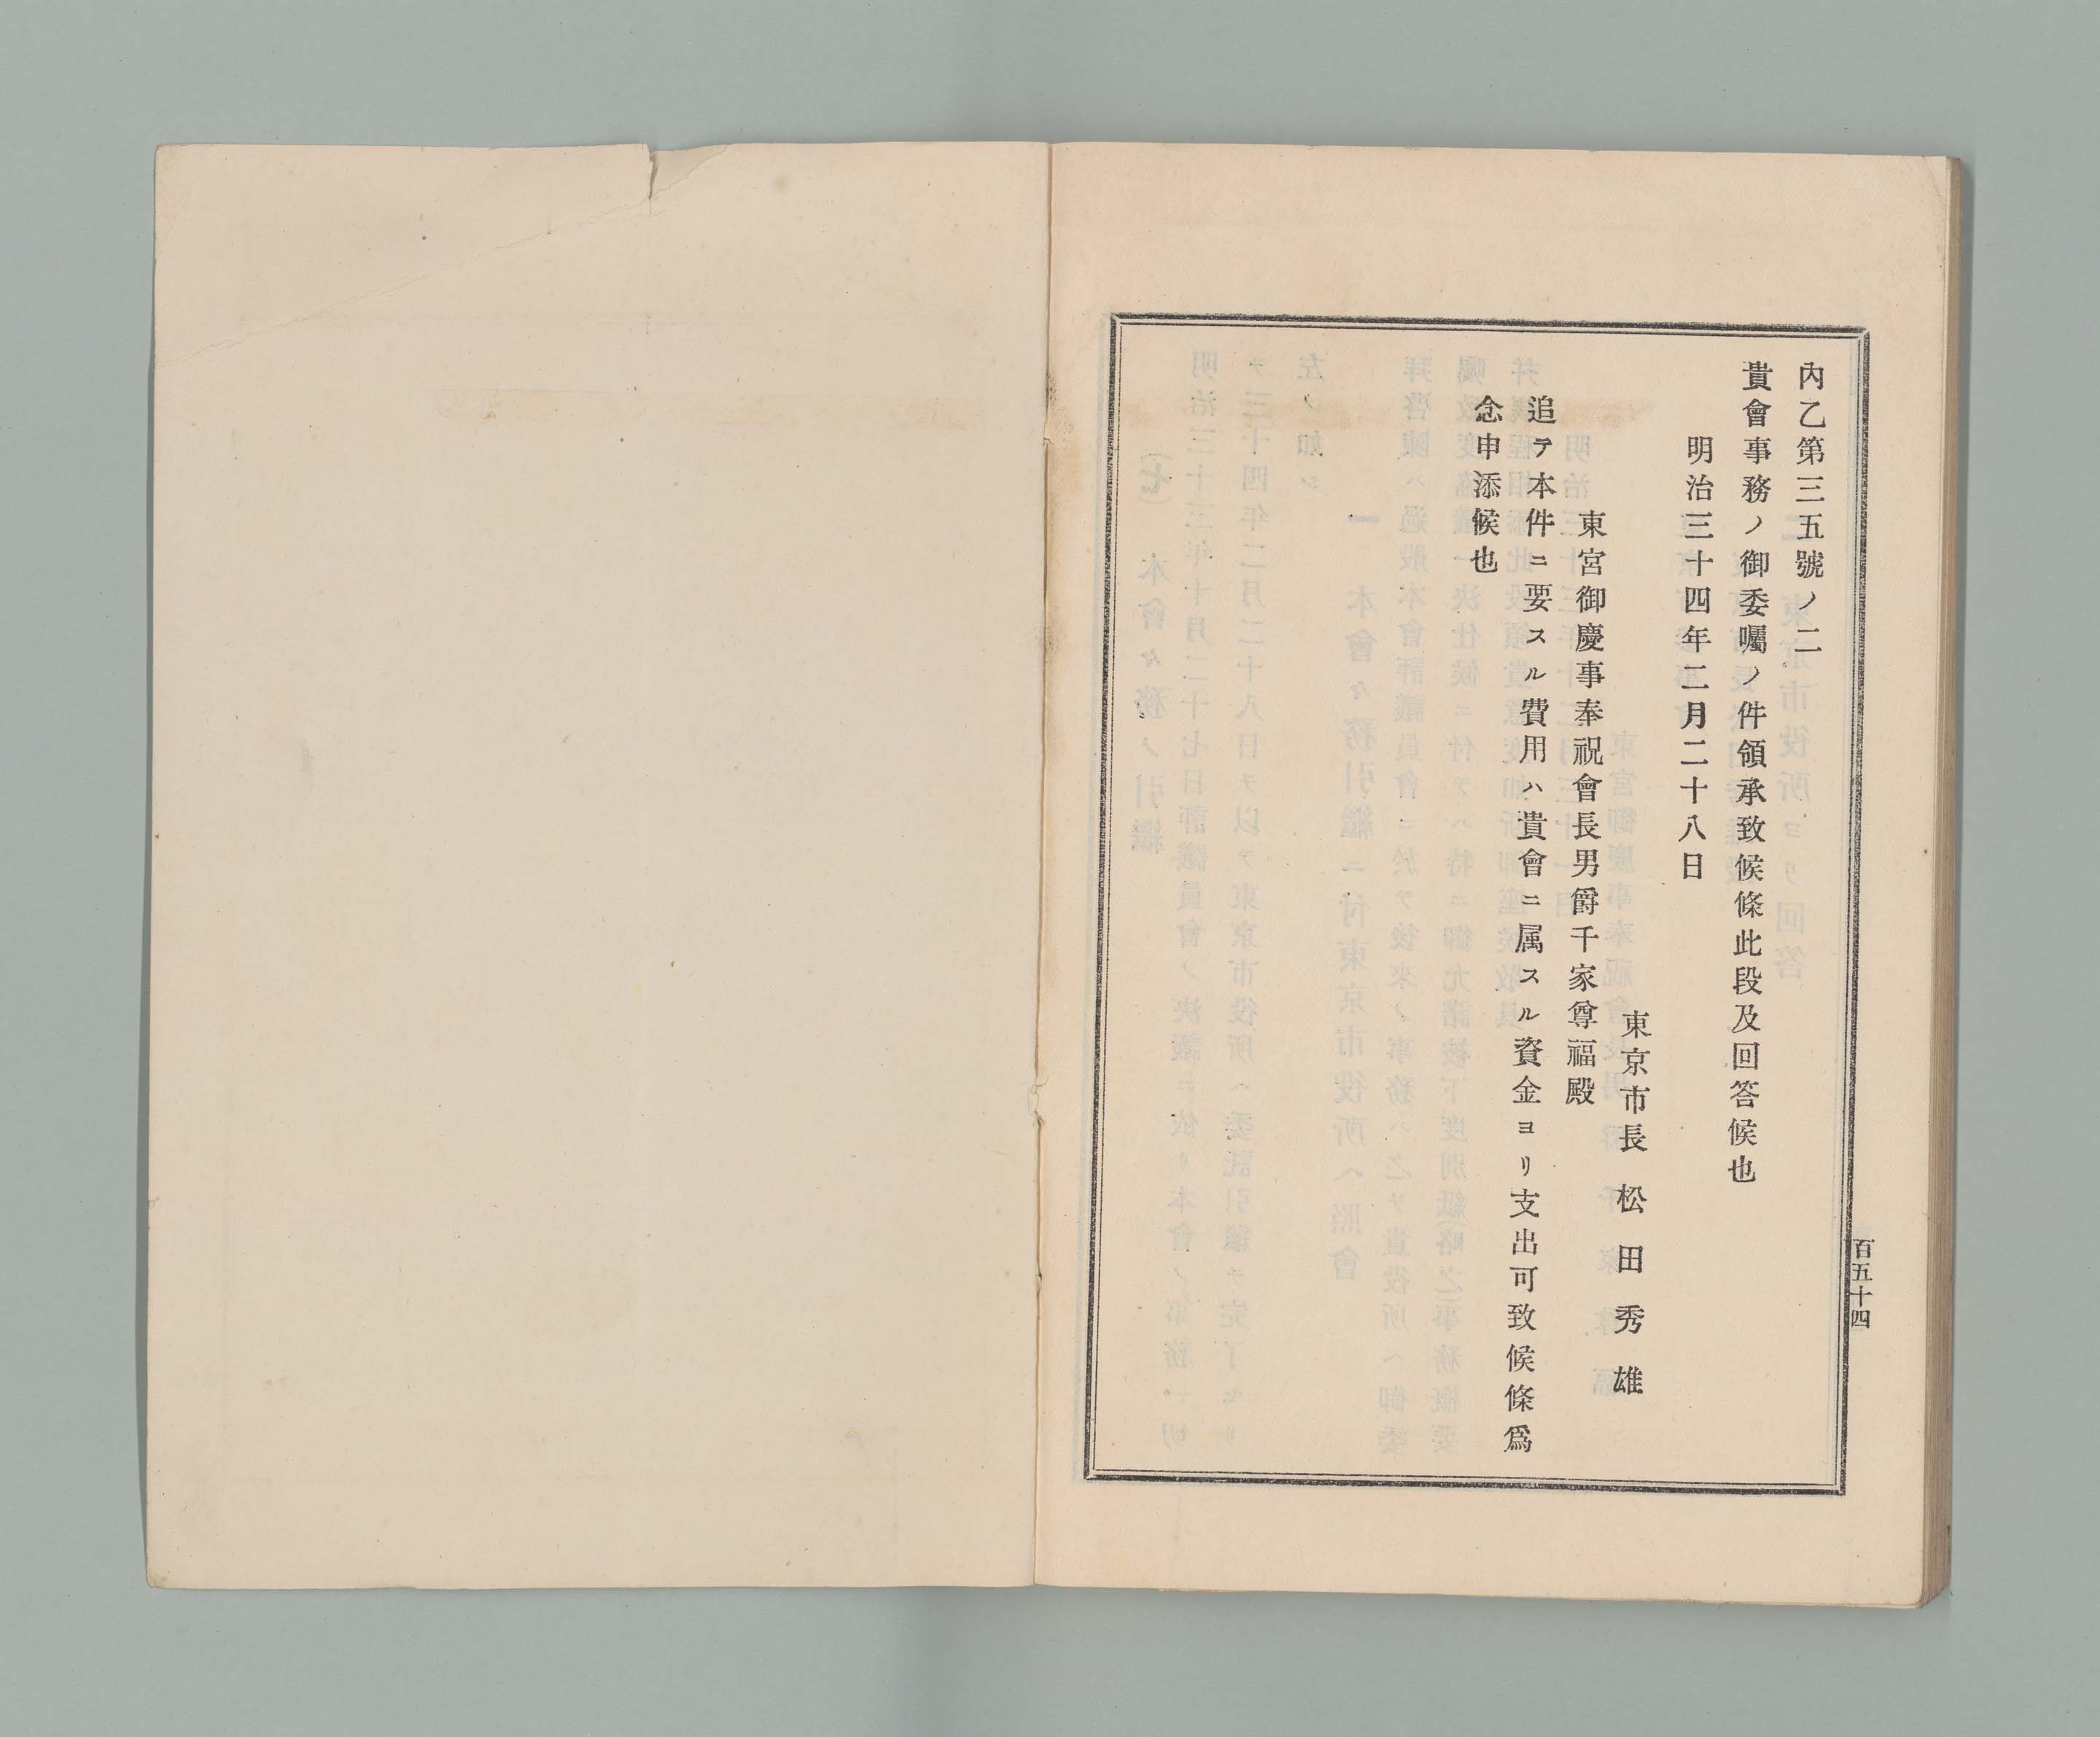 內乙第三五號ノ二
貴會事務ノ御委囑ノ件領承致候條此段及回答候也
明治三十四年二月二十八日
東京市長 松田秀雄
東宮御慶事奉祝會長男爵千家尊福殿
追テ本件ニ要スル費用ハ貴會ニ属スル資金ヨリ支出可致候條爲
念申添候也
百五十四